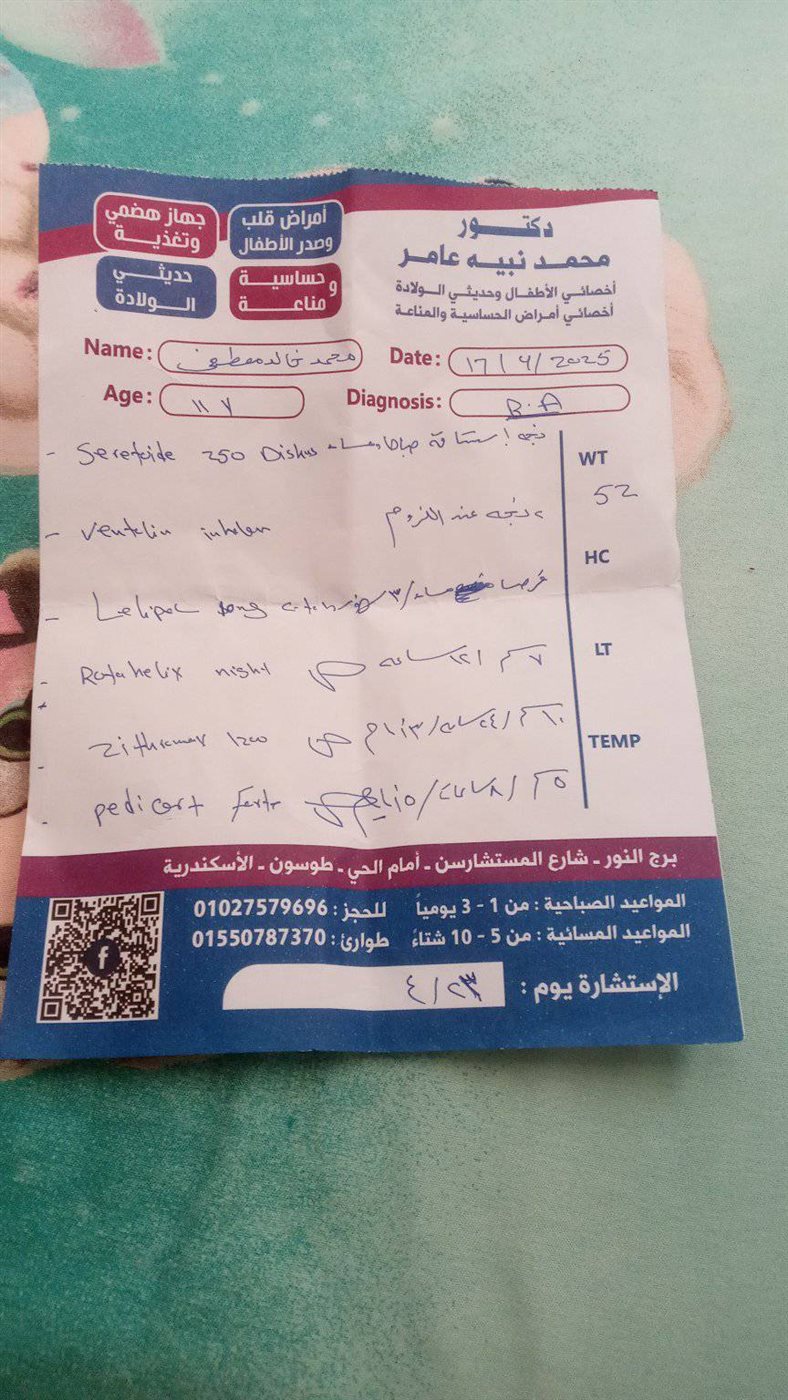 دكتور
محمد نبيه عامر
أخصائي الأطفال وحديثي الولادة
أخصائي أمراض الحساسية والمناعة
أمراض قلب وصدر الأطفال
جهاز هضمي وتغذية
وحساسية مناعة
حديثي الولادة
Name: محمد خالد مصطفى
Date: 17/4/2025
Age:
Diagnosis: B.A
- Seretide 250 Diskus صباحا ومساء
WT
52
- Ventolin inhaler ٢ بخه عند اللزوم
HC
LT
- Rotahelix night ٧ سم / ١٢ ساعه
- Zithromax ١٠ سم / ٢٤ ساعه / ٣ ايام
TEMP
- Pedicort forte ٥ سم / ٨ ساعات / ٥ ايام
برج النور - شارع المستشارسن - أمام الحي - طوسون - الأسكندرية
المواعيد الصباحية : من 1 - 3 يومياً للحجز : 01027579696
المواعيد المسائية : من 5 - 10 شتاءً طوارئ : 01550787370
الإستشارة يوم :